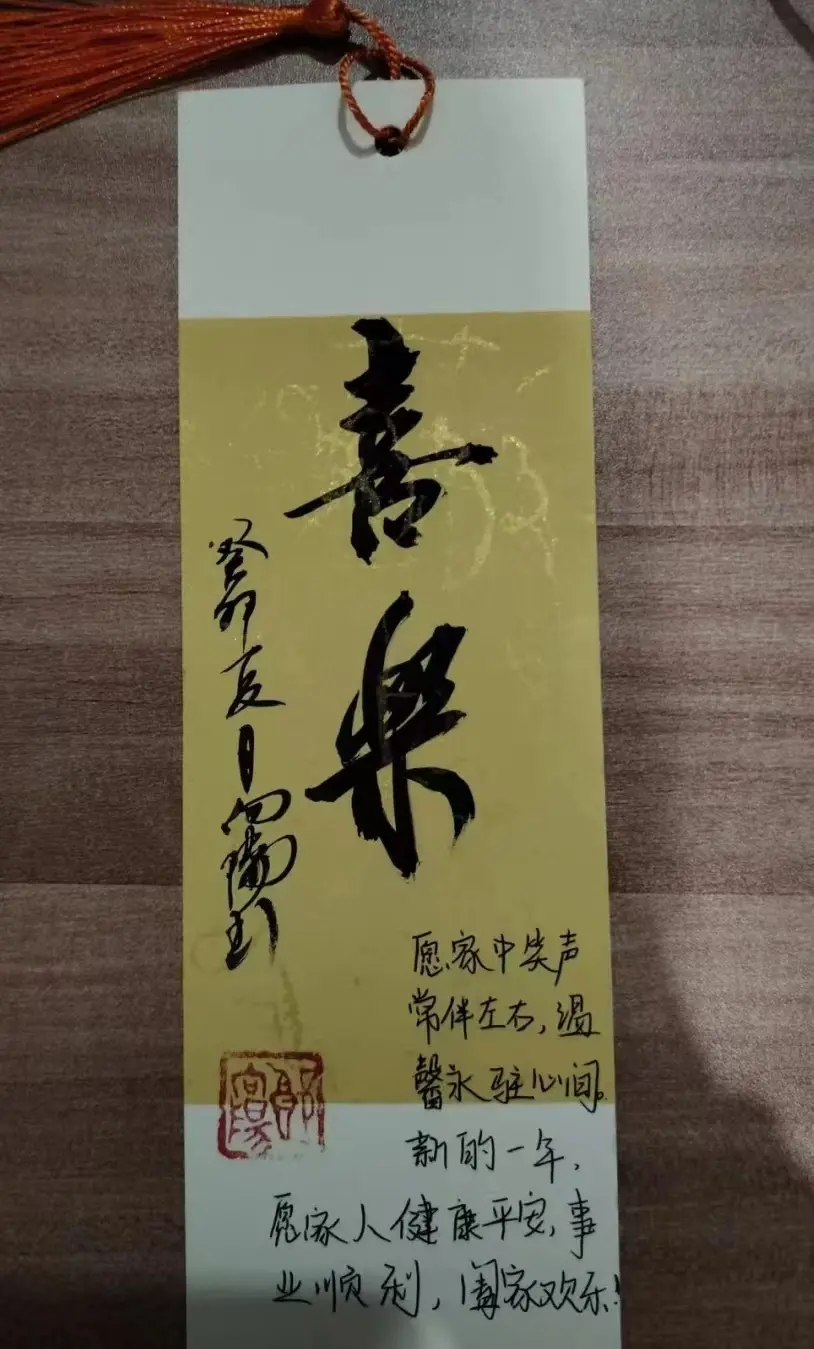 喜樂
癸卯夏日向陽
愿家中笑声
常伴左右,温
馨永驻心间。
新的一年,
愿家人健康平安,事
业顺利,阖家欢乐!